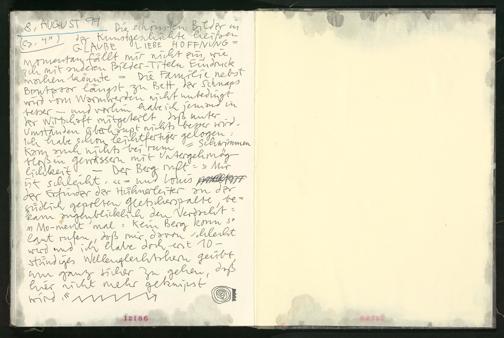 8. AUGUST 99 Die schönsten Bilder in
(ca. 4") der Kunstgeschichte heißen
GLAUBE LIEBE HOFFNUNG =
Momentan fällt mir nicht ein, wie
ich mit anderen Bilder-Titeln Eindruck
machen könnte = Die Familie nebst
längst zu Bett, der Schnaps
wird vom Warmwerden nicht unbedingt
besser — und vorhin habe ich jemand in
der Wirtschaft mitgeteilt, daß unter
Umständen überhaupt nichts besser wird.
Ich habe schon leichtfertiger gelogen.
Kam auch nichts bei rum = Schwimmen
bloß in Gewässern mit Untergehmög-
lichkeit — Der Berg ruft = » Mir
ist schlecht. «= und Louis
der Erfinder der Hühnerleiter an der
südlich Gletscherspalte, be-
kam augenblicklich den Verdacht =
» Mo-ment mal = Kein Berg kann so
laut rufen, daß mir davon schlecht
wird und ich habe doch erst 10-
ständiges geübt,
um ganz sicher zu gehen, daß
hier nicht mehr geknipst
wird. «
12186